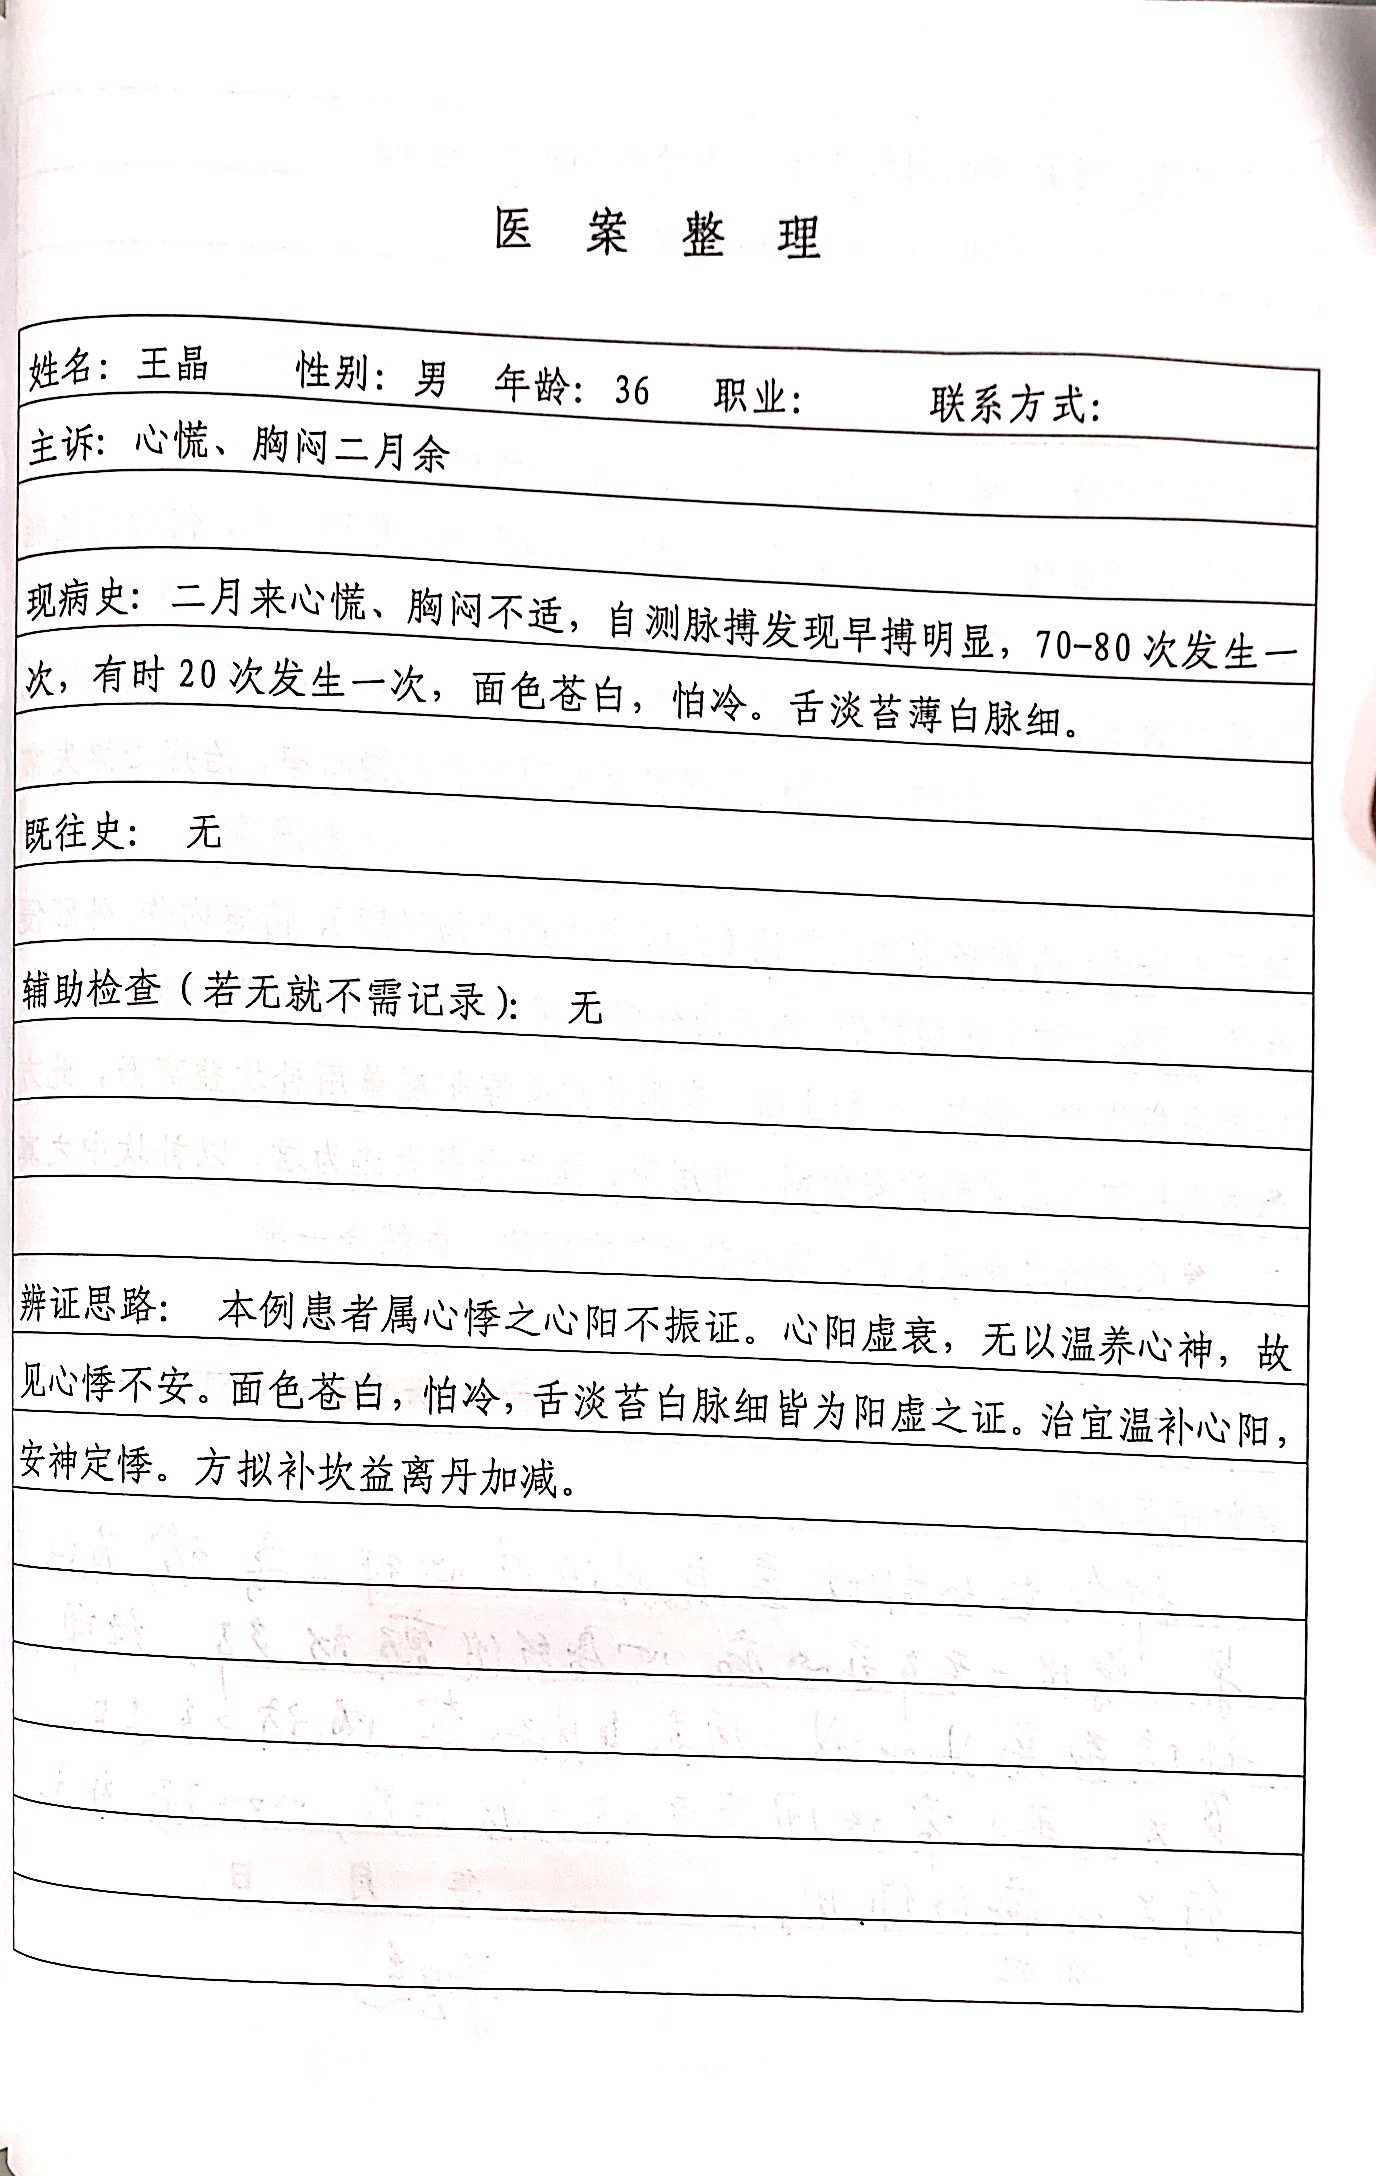 医 案 整 理
姓名：王晶 性别：男 年龄：36 职业： 联系方式：
主诉：心慌、胸闷二月余
现病史：二月来心慌、胸闷不适，自测脉搏发现早搏明显，70-80 次发生一
次，有时 20 次发生一次，面色苍白，怕冷。舌淡苔薄白脉细。
既往史： 无
辅助检查（若无就不需记录）： 无
辨证思路： 本例患者属心悸之心阳不振证。心阳虚衰，无以温养心神，故
见心悸不安。面色苍白，怕冷，舌淡苔白脉细皆为阳虚之证。治宜温补心阳，
安神定悸。方拟补坎益离丹加减。